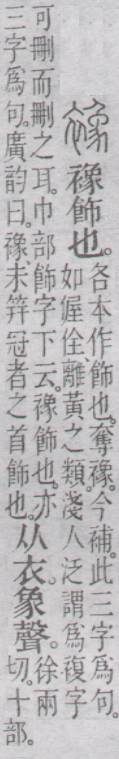 襐 襐飾也。
各本作飾也。奪襐。今補。此三字爲句。
如偓佺、離黃之類。淺人泛謂爲複字
可刪而刪之耳。巾部飾字下云。襐飾也。亦
三字爲句。廣韵曰。襐、未笄冠者之首飾也。
从衣。象聲。
徐兩
切。十部。